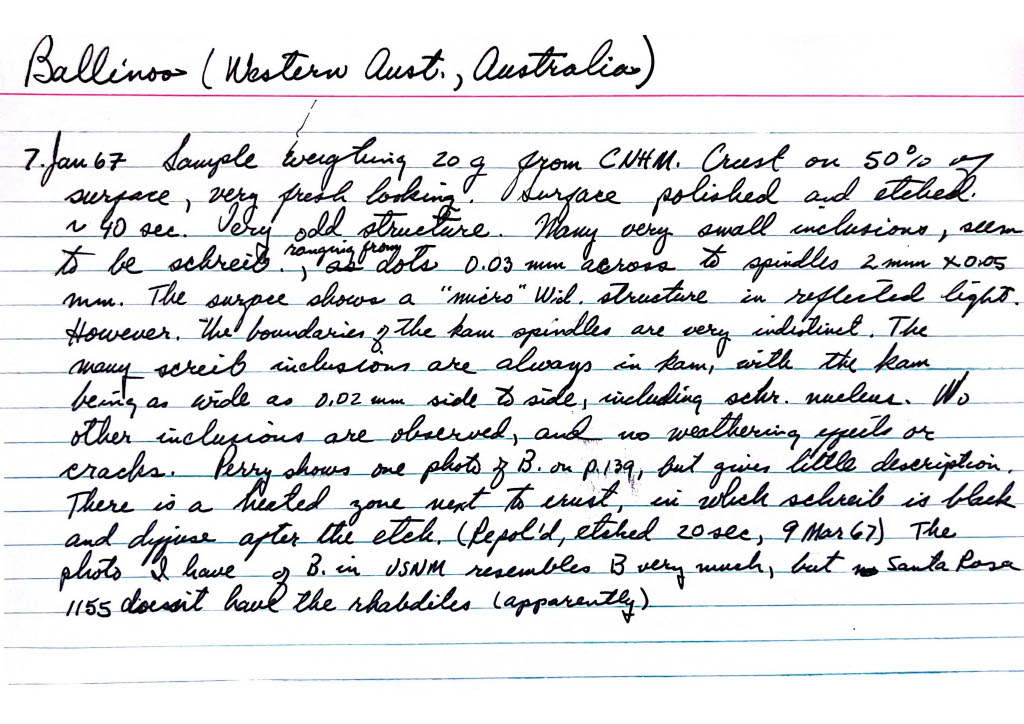 Ballinoo (Western Aust., Australia)
7. Jan 67 Sample weighing 20 g from CNHM. Crust on 50% of
surface, very fresh looking. Surface polished and etched.
~ 40 sec. Very odd structure. Many very small inclusions, seem
to be schreib., ranging from as dots 0.03 mm across to spindles 2 mm x 0.05
mm. The surface shows a "micro" Wid. structure in reflected light.
However. the boundaries of the kam spindles are very indistinct. The
many screib inclusions are always in kam, with the kam
being as wide as 0.02 mm side to side, including schr. nucleus. No
other inclusions are observed, and no weathering effects or
cracks. Perry shows one photo of B. on p. 139, but gives little description.
There is a heated zone next to crust, in which schreib is black
and diffuse after the etch. (Repol'd, etched 20 sec, 9 Mar 67) The
photo I have of B. in USNM resembles B very much, but Santa Rosa
1155 doesn't have the rhabdites (apparently)